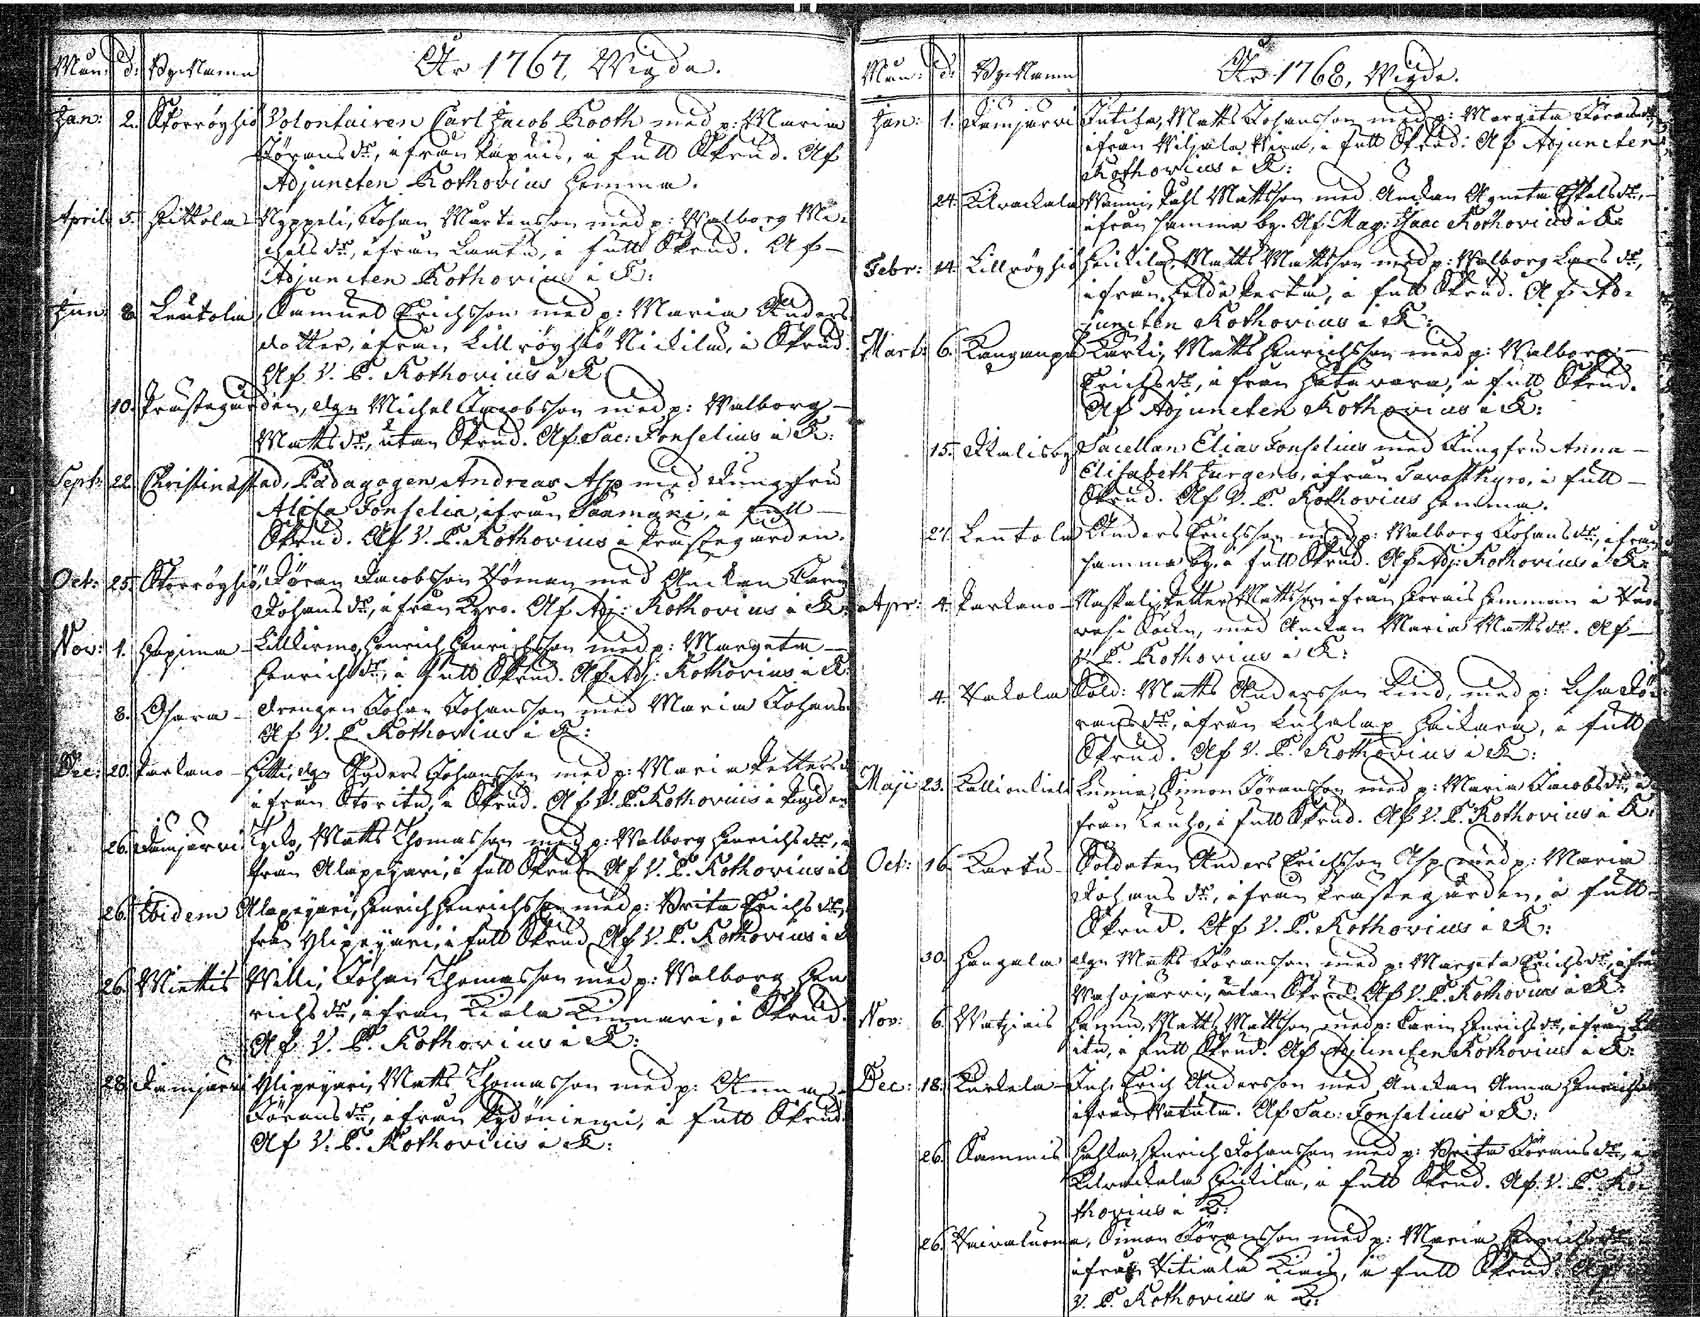 Mån: d: By-Namn År 1767, Wigde.
Jan: 2. Storröyhiö Volontairen Carl Jacob Rooth med p: Maria
Jörans dr, ifrån Lapuis, i full Skrud. Af
Adjuncten Rothovius hemma.
April 5. Hittola Nyppeli, Johan Mårtensson med p: Walborg Mi-
chels dr, ifrån i full Skrud. Af
Adjuncten Rothovius i K:
Jun: 8. Leutola, Samuel Erichsson med p: Maria Anders
dotter, ifrån Lillröyhiö Nickilä, i Skrud.
Af V. P. Rothovius i K
10. Prästegården, dgn Michel Jacobsson med p: Walborg
Matts dr, utan Skrud. Af Sac: Fonselius i K:
Sept: 22. Christinæstad, Pædagogen Andreas Asp med Jungfru
Alisa Fonselia, ifrån i full
Skrud. Af V. P. Rothovius i Prästegården.
Oct: 25. Storröyhiö, Jöran Jacobsson med Änckan Carin
Johans dr, ifrån Kyro. Af Adj: Rothovius i K:
Nov: 1. Henrich Henrichsson med p: Margeta
Henrichs dr, i full Skrud. Af Adj: Rothovius i K:
8. Osara Drengen Johan Johansson med Maria Johans
Af V. P. Rothovius i K:
Dec: 20. Parkano dgn Anders Johansson med p: Maria Petters
ifrån i Skrud. Af V. P. Rothovius i
26. Jämjärvi Matts Thomasson med p: Walborg Henrichs dr, i
från Alapeijari, i full Skrud. Af V. P. Rothovius i
26. Ibidem Alapeijari, Henrich Henrichsson med p: Brita Erichs dr,
från Ylipeijari, i full Skrud. Af V. P. Rothovius i
26. Miettis Willi, Johan Thomasson med p: Walborg Hen
richs dr, ifrån Kiala i Skrud.
Af V. P. Rothovius i K:
28. Jämjärvi Ylipeijari, Matts Thomasson med p: Anna
Jörans dr, ifrån i full Skrud.
Af V. P. Rothovius i K:
Mån: d: By-Namn År 1768, Wigde.
Jan: 1. Jämjärvi Matts Johansson med p: Margeta Jörans
ifrån i full Skrud. Af Adjuncten
Rothovius i K:
24. Kilwackala Påhl Mattsson med Änckan Agneta Eskels dr,
ifrån samma by. Af Mag: Isaac Rothovius i K:
Febr: 14. Lillröyhiö Heickilä, Matts Mattsson med p: Walborg Lars dr,
ifrån i full Skrud. Af Ad-
juncten Rothovius i K:
Mart: 6. Kanganpä Karki, Matts Henrichsson med p: Walborg
Erichs dr, ifrån Hätävara, i full Skrud.
Af Adjuncten Rothovius i K:
15. Ikalisby Sacellan Elias Fonselius med Jungfru Anna
Elisabeth Jurgens, ifrån Tavastkyro, i full
Skrud. Af V. P. Rothovius hemma.
27. Leutola Anders Erichsson med p: Walborg Johans dr, ifrån
samma by, i full Skrud. Af Adj: Rothovius i K:
Apr: 4. Parkano Petter Mattsson ifrån hemman i
Sokn, med Änckan Maria Matts dr. Af
V. P. Rothovius i K:
4. Vakola Sold: Matts Andersson Lind, med p: Lisa Jö-
rans dr, ifrån Luhalax Heickarä, i full
Skrud. Af V. P. Rothovius i K:
Maji 23. Kallionkieli Simon Jöransson med p: Maria Jacobs dr, i
från Leuho, i full Skrud. Af V. P. Rothovius i K:
Oct: 16. Kartu Soldaten Anders Erichsson Asp med p: Maria
Johans dr, ifrån Prästegården, i full
Skrud. Af V. P. Rothovius i K:
30. dgn Matts Jöransson med p: Margeta Erichs dr, ifrån
Vahojärvi, utan Skrud. Af V. P. Rothovius i K:
Nov: 6. Vatziais Matts Mattsson med p: Carin Henrichs dr, ifrån
i full Skrud. Af Adjuncten Rothovius i K:
Dec: 18. Karkela Erich Andersson med Änckan Anna Henrichs
ifrån Vatula. Af Sac: Fonselius i K:
26. Sammis Henrich Johansson med p: Brita Jörans dr, i
Kilwackala Heickilä, i full Skrud. Af V. P. Ro-
thovius i K:
26. Vaivaluoma, Simon Jöransson med p: Maria Henrichs dr
ifrån i full Skrud. Af
V. P. Rothovius i K: